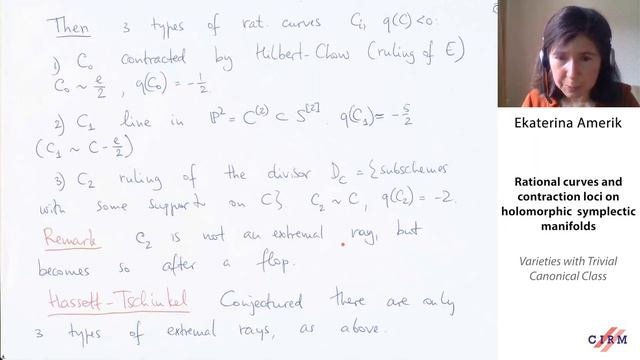 Then 3 types of rat. curves Ci, q(C)<0:
1) C₀ contracted by Hilbert-Chow (ruling of E)
C₀ ~ e/2 , q(C₀) = -1/2.
2) C₁ line in ℙ² = C⁽²⁾ ⊂ S^[2] q(C₁) = -5/2
(C₁ ~ C - e/2)
3) C₂ ruling of the divisor D_C = {subschemes
with some support on C}. C₂ ~ C, q(C₂) = -2.
Remark C₂ is not an extremal ray, but
becomes so after a flop.
Hassett-Tschinkel Conjectured there are only
3 types of extremal rays, as above.
Ekaterina Amerik
Rational curves and
contraction loci on
holomorphic symplectic
manifolds
Varieties with Trivial
Canonical Class
CIRM